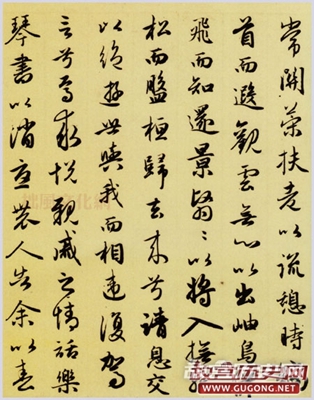 常關策扶老以流憩時矯
首而遐觀雲無心以出岫鳥倦
飛而知還景翳〻以將入撫
松而盤桓歸去來兮請息交
以絕遊世與我而相違復駕
言兮焉求悅親戚之情話樂
琴書以消憂農人告余以春
故宫历史网
WWW.GUGONG.NET